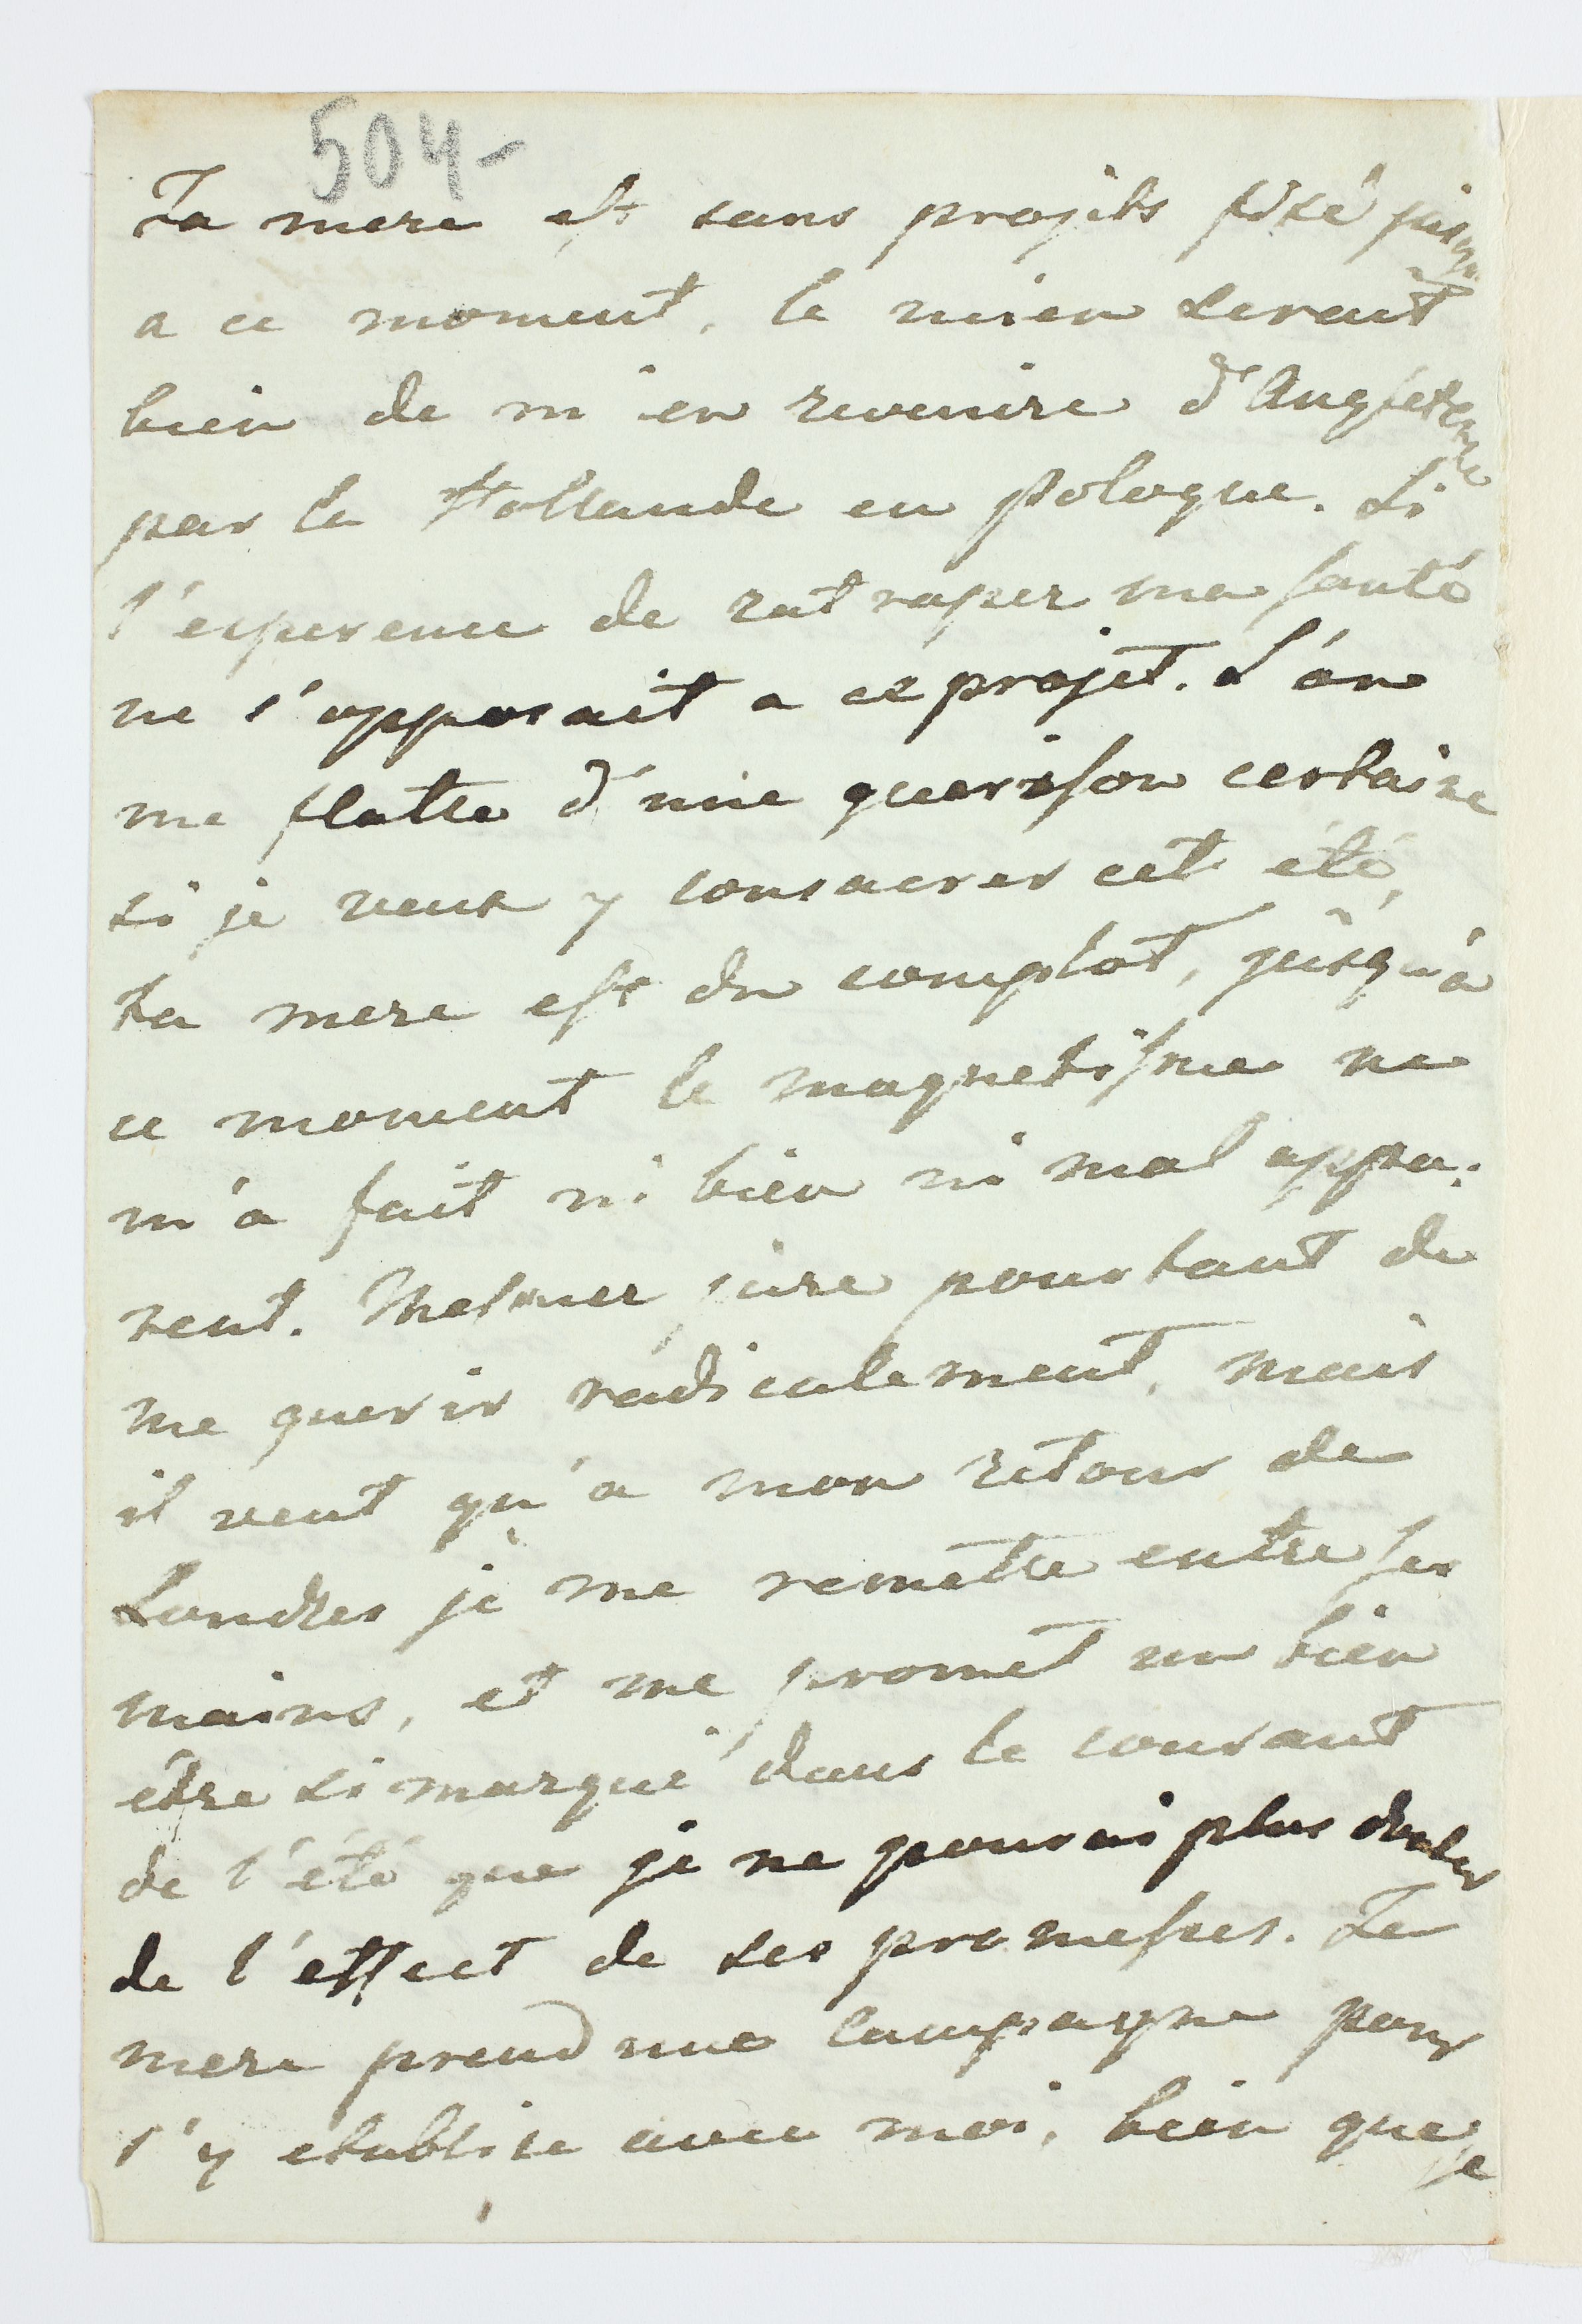 504-
Ta mere est sans projets fixé jusqu'
a ce moment, le mien serait
bien de m'en revenire d'Angleterre
par la Hollande en Pologne. Si
l'esperence de ratraper ma santé
ne s'opposait a ce projet. L'on
me flatte d'une guerison certaine
si je veux y consacrer cet été,
ta mere est du complot, jusqu'à
ce moment le magnetisme ne
m'a fait ni bien ni mal appa-
rent. Mesmer jure pourtant de
me guerir radicalement, mais
il veut qu'a mon retour de
Londres je me remette entre ses
mains, et me promet un bien
être si marqué dans le courant
de l'été que je ne pourai plus douter
de l'effect de ses promesses. Ta
mere prend une campagne pour
s'y etablire avec moi, bien que je